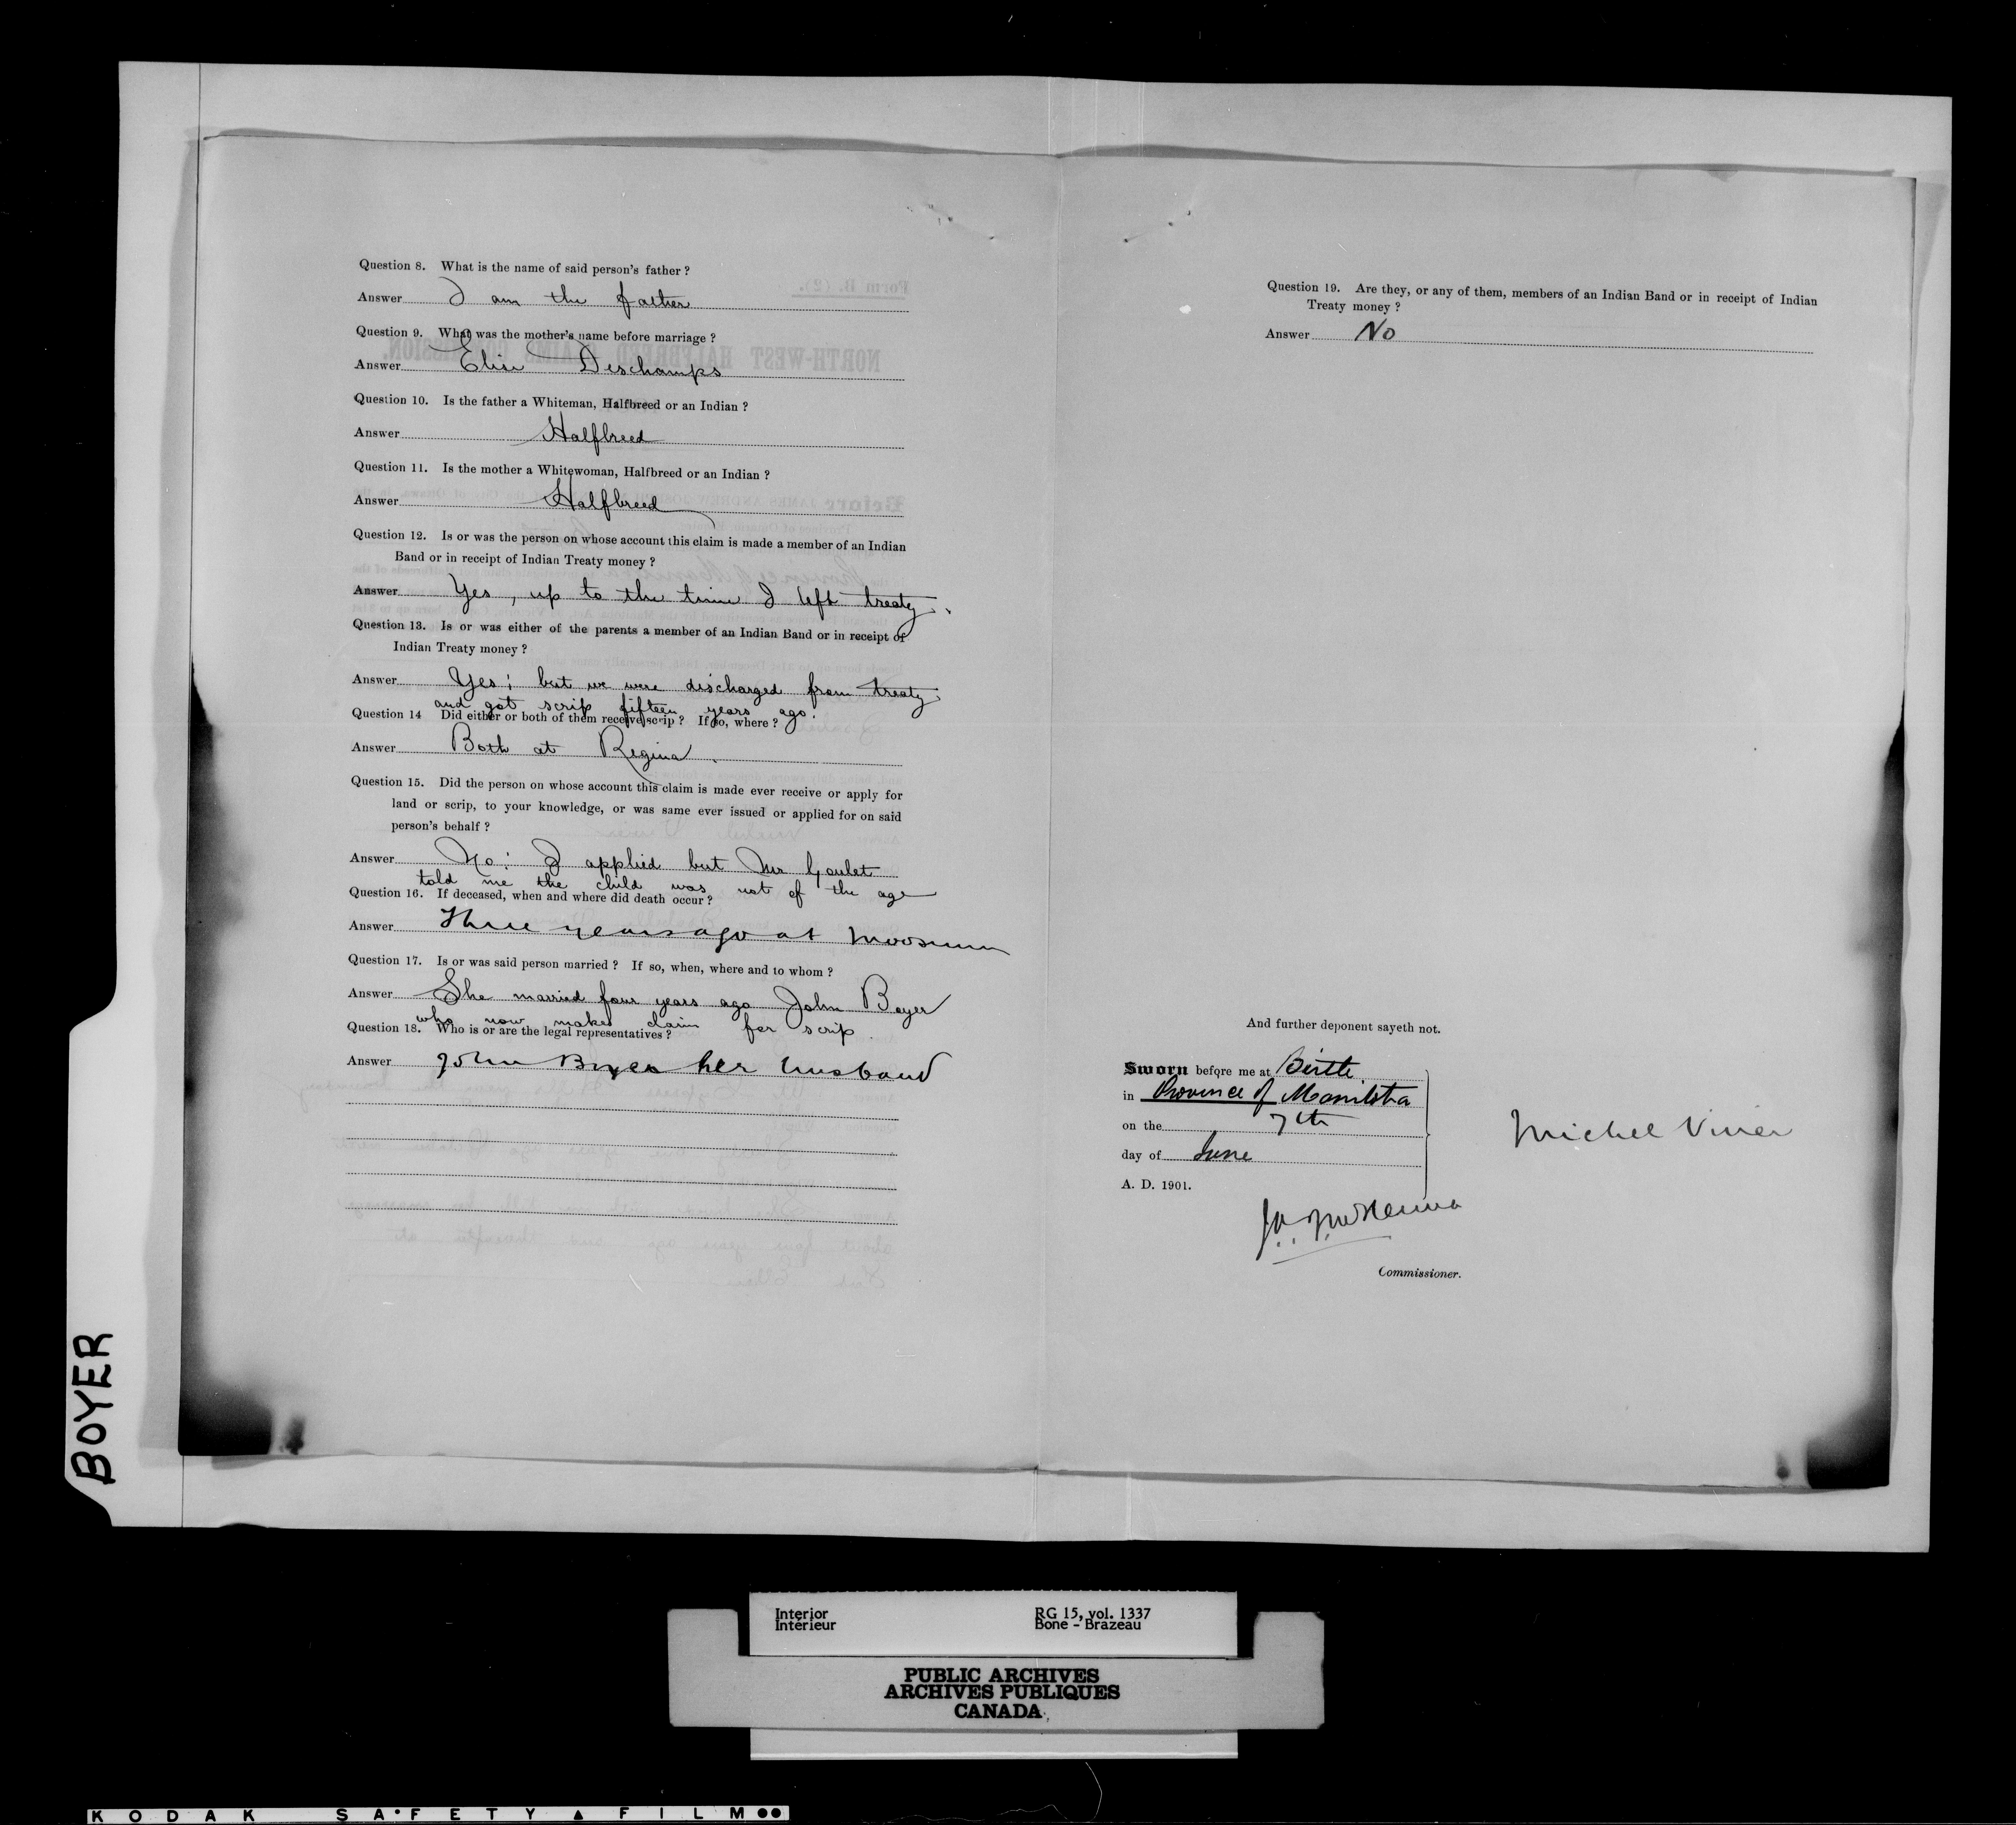 Question 8. What is the name of said person's father ?
Answer I am the father
Question 9. What was the mother's name before marriage ?
Answer Elise Deschamps
Question 10. Is the father a Whiteman, Halfbreed or an Indian ?
Answer Halfbreed
Question 11. Is the mother a Whitewoman, Halfbreed or an Indian ?
Answer Halfbreed
Question 12. Is or was the person on whose account this claim is made a member of an Indian
Band or in receipt of Indian Treaty money ?
Answer Yes, up to the time I left treaty.
Question 13. Is or was either of the parents a member of an Indian Band or in receipt of
Indian Treaty money ?
Answer Yes; but we were discharged from treaty
and got scrip fifteen years ago.
Question 14 Did either or both of them receive scrip ? If so, where ?
Answer Both at Regina.
Question 15. Did the person on whose account this claim is made ever receive or apply for
land or scrip, to your knowledge, or was same ever issued or applied for on said
person's behalf ?
Answer No: I applied but Mr Goulet
told me the child was not of the age
Question 16. If deceased, when and where did death occur ?
Answer Three years ago at Moosomin
Question 17. Is or was said person married ? If so, when, where and to whom ?
Answer She married four years ago John Boyer
who now makes claim for scrip.
Question 18. Who is or are the legal representatives ?
Answer John Boyer her husband
Question 19. Are they, or any of them, members of an Indian Band or in receipt of Indian
Treaty money ?
Answer No
And further deponent sayeth not.
Sworn before me at Birtle
in Province of Manitoba
on the 7th
day of June
A. D. 1901.
Michel Vivier
J A J McKenna
Commissioner.
BOYER
Interior RG 15, vol. 1337
Intérieur Bone - Brazeau
PUBLIC ARCHIVES
ARCHIVES PUBLIQUES
CANADA
KODAK SAFETY FILM